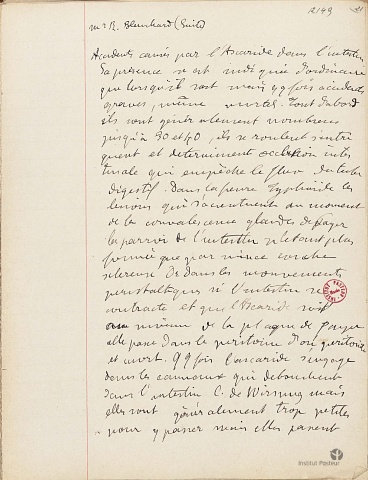 2149
21
Mr R. Blanchard (Suite)
Accidents causés par l'Ascaride dans l'intestin
Sa présence n'est indiquée d'ordinaire
que lorsqu'il sort mais qqfois accidents
graves même mortel. Tout d'abord
ils sont généralement nombreux
jusqu'à 30 et 40 ils se roulent s'entri
quent et determinent occlusion intes
tinale qui empêche le flux du tube
digestif. Dans la fievre Typhoïde les
lesions qui s'accentuent au moment
de la convalescence glandes de Peyer
la parroi de l'intestin n'etant plus
formée que par mince couche
sereuse Or dans les mouvements
peristaltiques si l'intestin se
contracte et que l'Ascaride soit
au niveau de la plaque de Peyer
elle passe dans le peritoine d'où peritonite
et mort. qqfois l'ascaride s'engage
dans les canaux qui debouchent
dans l'intestin C. de Wirsung mais
elles sont généralement trop petites
pour y passer mais elles passent
INSTITUT PASTEUR
Institut Pasteur